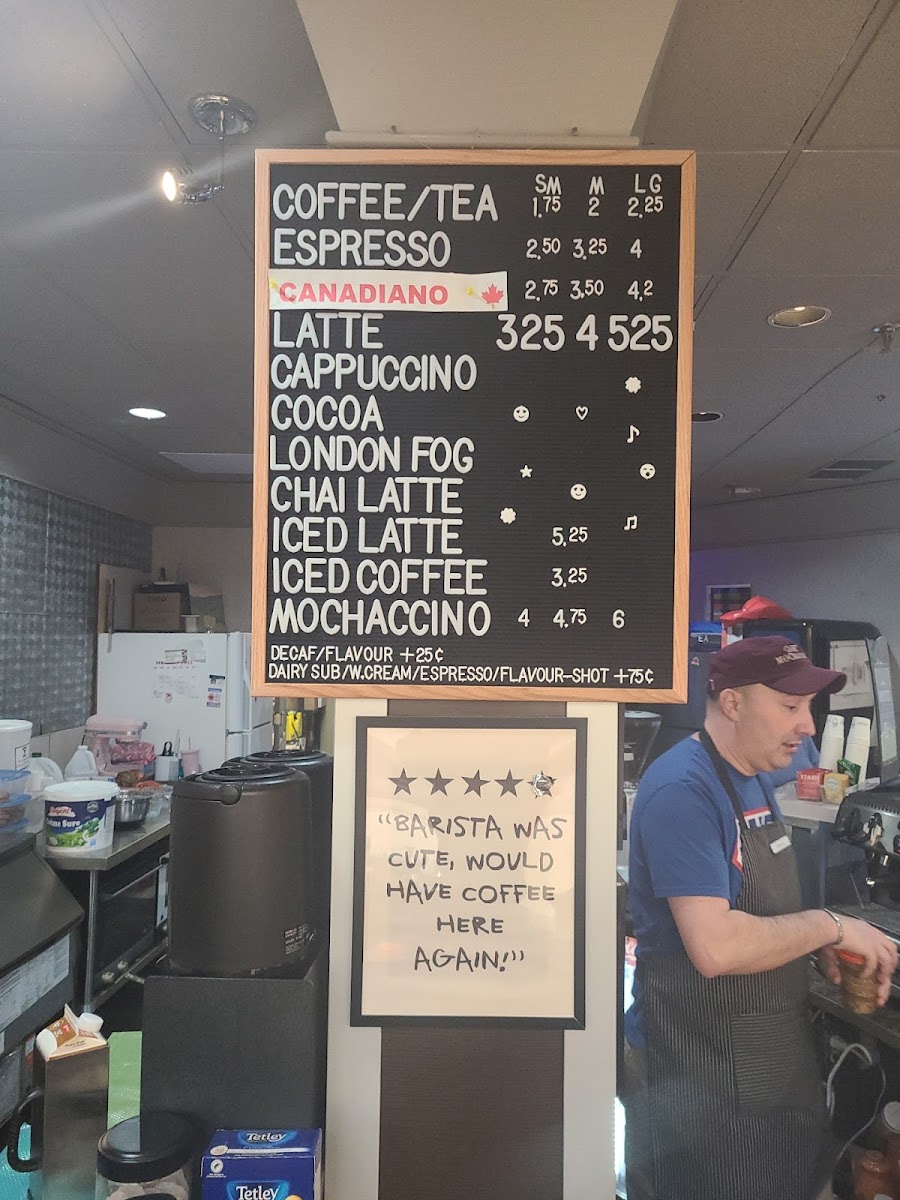 SM M LG
COFFEE/TEA 1.75 2 2.25
ESPRESSO 2.50 3.25 4
CANADIANO 2.75 3.50 4.2
LATTE 325 4 525
CAPPUCCINO
COCOA
LONDON FOG
CHAI LATTE
ICED LATTE 5.25
ICED COFFEE 3.25
MOCHACCINO 4 4.75 6
DECAF/FLAVOUR +25¢
DAIRY SUB/W.CREAM/ESPRESSO/FLAVOUR-SHOT +75¢
"BARISTA WAS
CUTE, WOULD
HAVE COFFEE
HERE
AGAIN!"
Tetley
Tetley